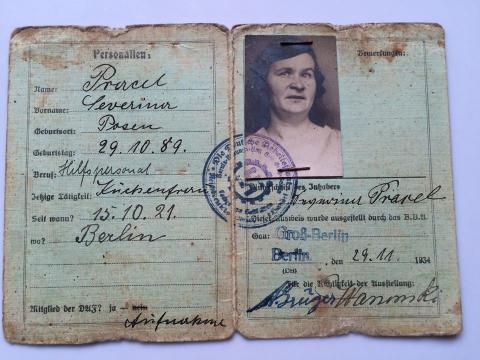 Personalien:
Name: Prarel
Vorname: Severina
Geburtsort: Posen
Geburtstag: 29.10.89.
Beruf: Hilfspersonal
Jetzige Tätigkeit: Küchenfrau
Seit wann? 15.10.21.
wo? Berlin
Mitglied der DAF? ja – nein
Aufnahme
Bemerkungen:
Die Deutsche Arbeitsfront
des Inhabers
Dieser Ausweis wurde ausgestellt durch das
Gau: Groß-Berlin
Berlin, den 29.11. 1934
(Ort)
Für die Richtigkeit der Ausstellung: